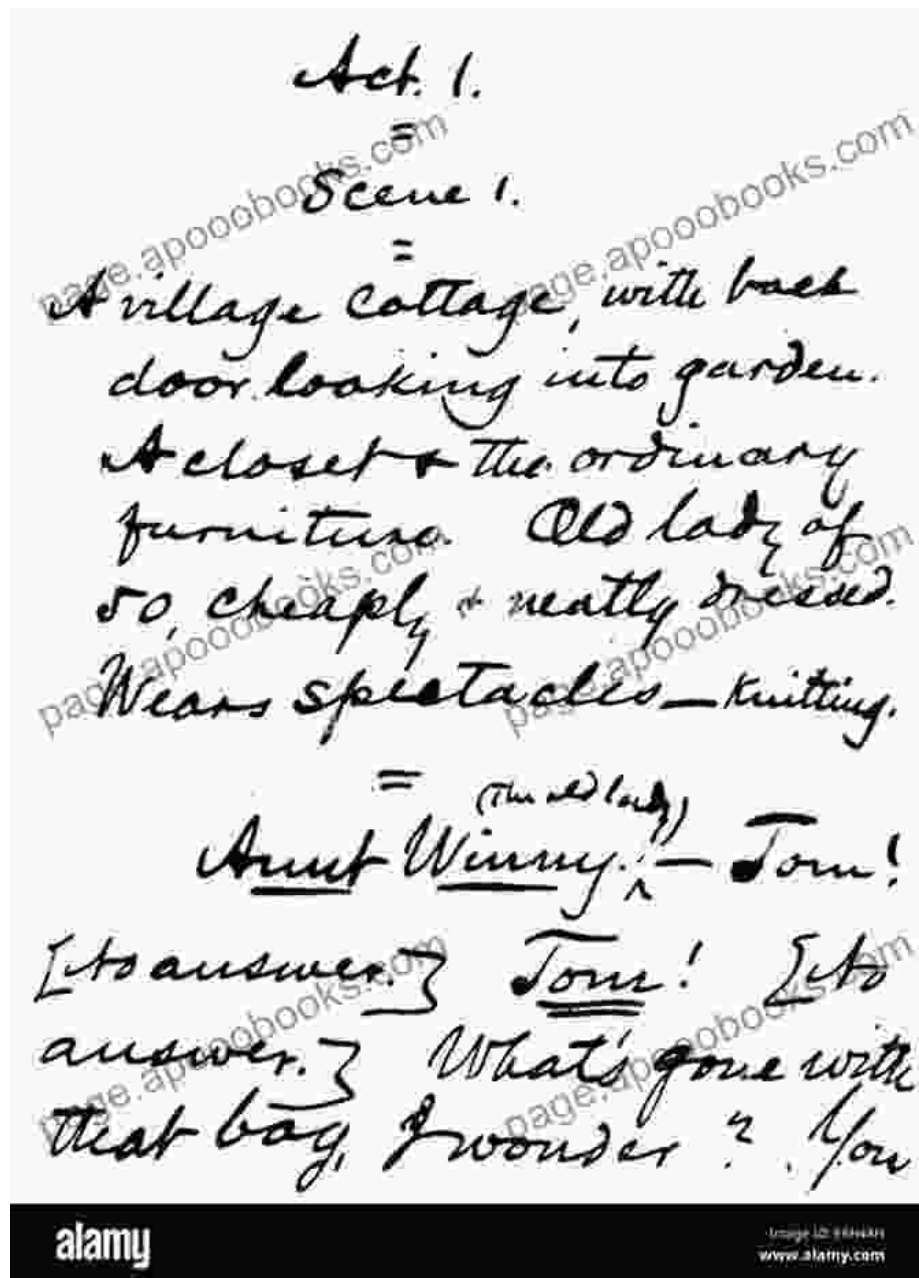 Act. 1.
=
Scene 1.
=
A village cottage, with back
door looking into garden.
A closet & the ordinary
furniture. Old lady of
50, cheaply & neatly dressed.
Wears spectacles — knitting.
=
(the old lady)
Aunt Winny. ^ — Tom!
[No answer.] Tom! [No
answer.] What's gone with
that boy, I wonder? You
page.apooobooks.com
page.apooobooks.com
page.apooobooks.com
page.apooobooks.com
page.apooobooks.com
page.apooobooks.com
alamy
Image ID:
www.alamy.com